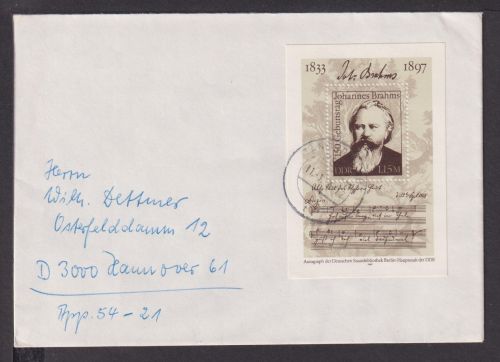 1833 1897
Joh. Brahms
Johannes Brahms
150. Geburtstag
DDR 1,15 M
Herrn
Wilh. Dettmer
Osterfelddamm 12
D 3000 Hannover 61
App. 54-21
Autograph der Deutschen Staatsbibliothek Berlin · Hauptstadt der DDR